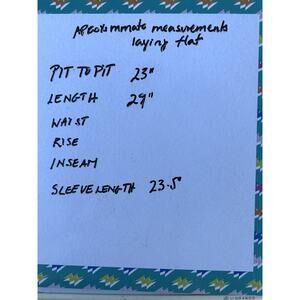 APROXIMMATE MEASUREMENTS
laying flat
PIT TO PIT 23"
LENGTH 29"
WAIST
RISE
INSEAM
SLEEVE LENGTH 23.5"